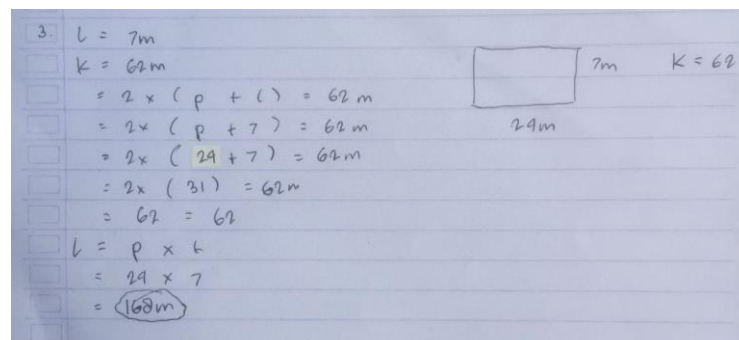 3. l = 7m
K = 62m
= 2 x ( p + l ) = 62 m
= 2x ( p + 7 ) = 62 m
= 2x ( 24 + 7 ) = 62m
= 2x ( 31 ) = 62m
= 62 = 62
L = p x l
= 24 x 7
= 168m
7m K = 62
24m